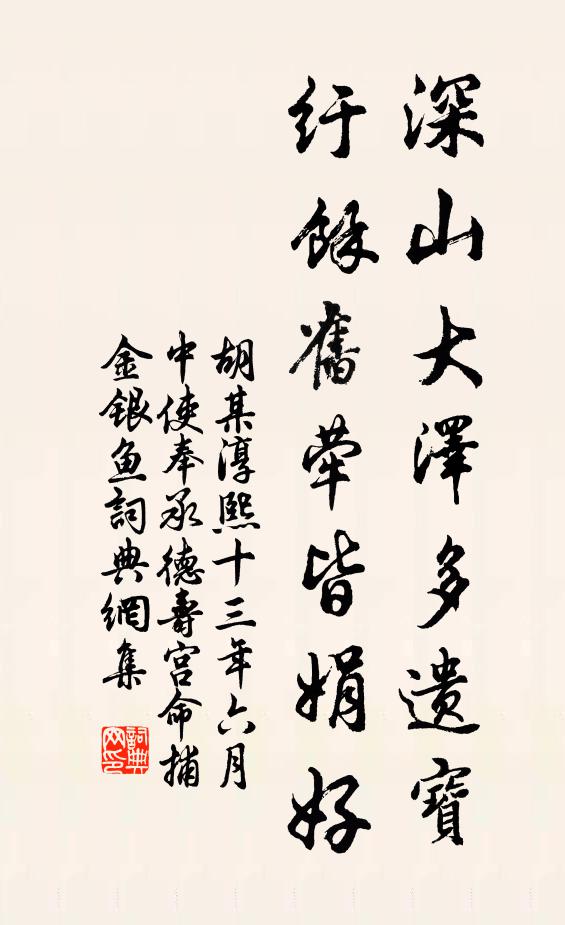 深山大澤多遺寶
紆餘舊犖皆娟好
胡某淳熙十三年六月
中使奉承德壽宮命捕
金銀魚詞典網集
詞典網印